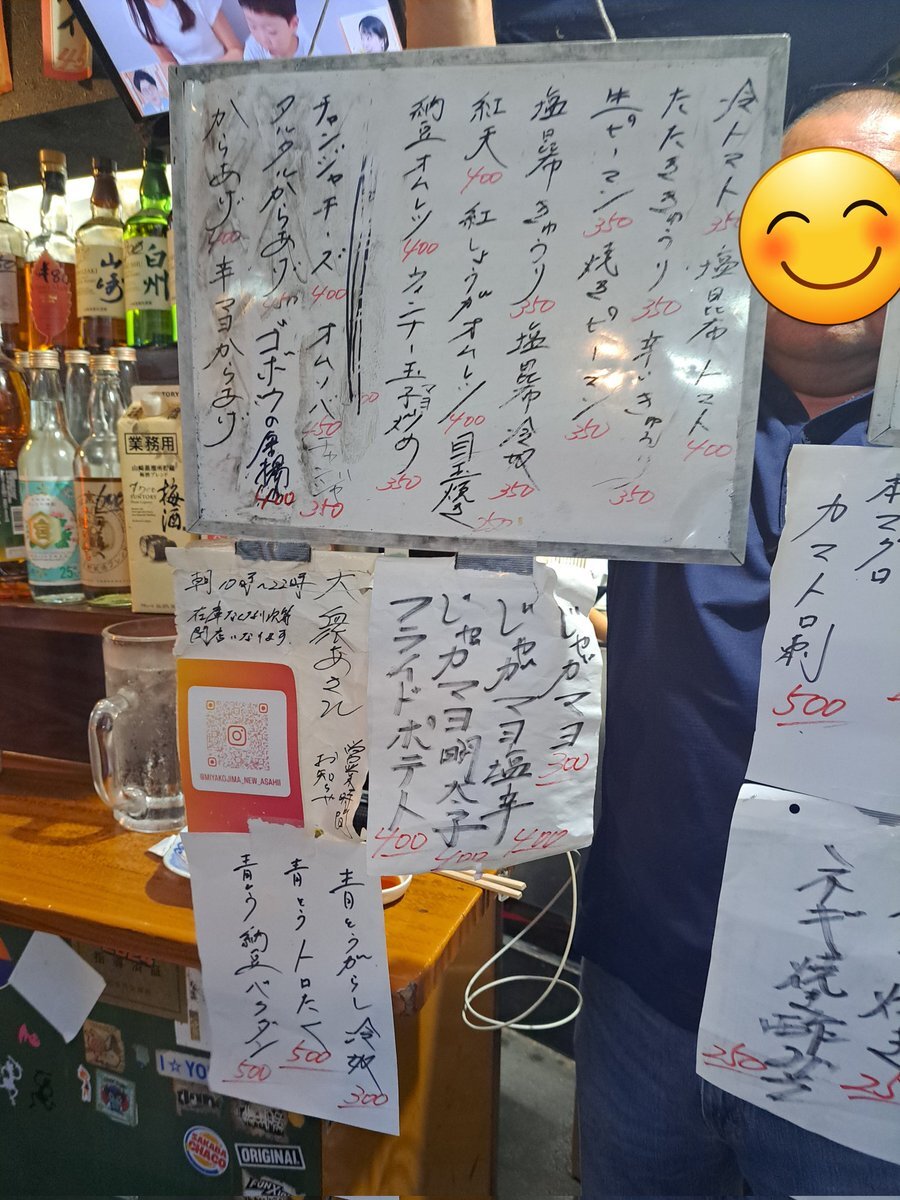 冷トマト 350 塩昆布トマト 400
たたききゅうり 350 辛いきゅうり 350
生ピーマン 350 焼きピーマン 350
塩昆布きゅうり 350 塩昆布冷奴 350
紅天 400 紅しょうがオムレツ 400 目玉焼き 350
納豆オムレツ 400 ウィンナー玉子炒め マヨ 350
チャンジャチーズ 400 オムソバ 450 チャンジャ 350
タルタルからあげ 450 ゴボウの唐揚 400
からあげ 400 辛マヨからあげ
本マグロ
カマトロ刺 500
じゃがマヨ 300
じゃがマヨ塩辛 400
じゃがマヨ明太子 400
フライドポテト 400
大衆あさひ
営業時間
お知らせ
朝10時～22時
在庫なくなり次第
閉店になります
@MIYAKOJIMA_NEW_ASAHII
青とうがらし冷奴 300
青とうトロたく 500
青とう納豆バクダン 500
ネギ焼き 250
山崎
白州
業務用
梅酒
SUNTORY
25%
I☆YO
SAKABA
CHACO
ORIGINAL.